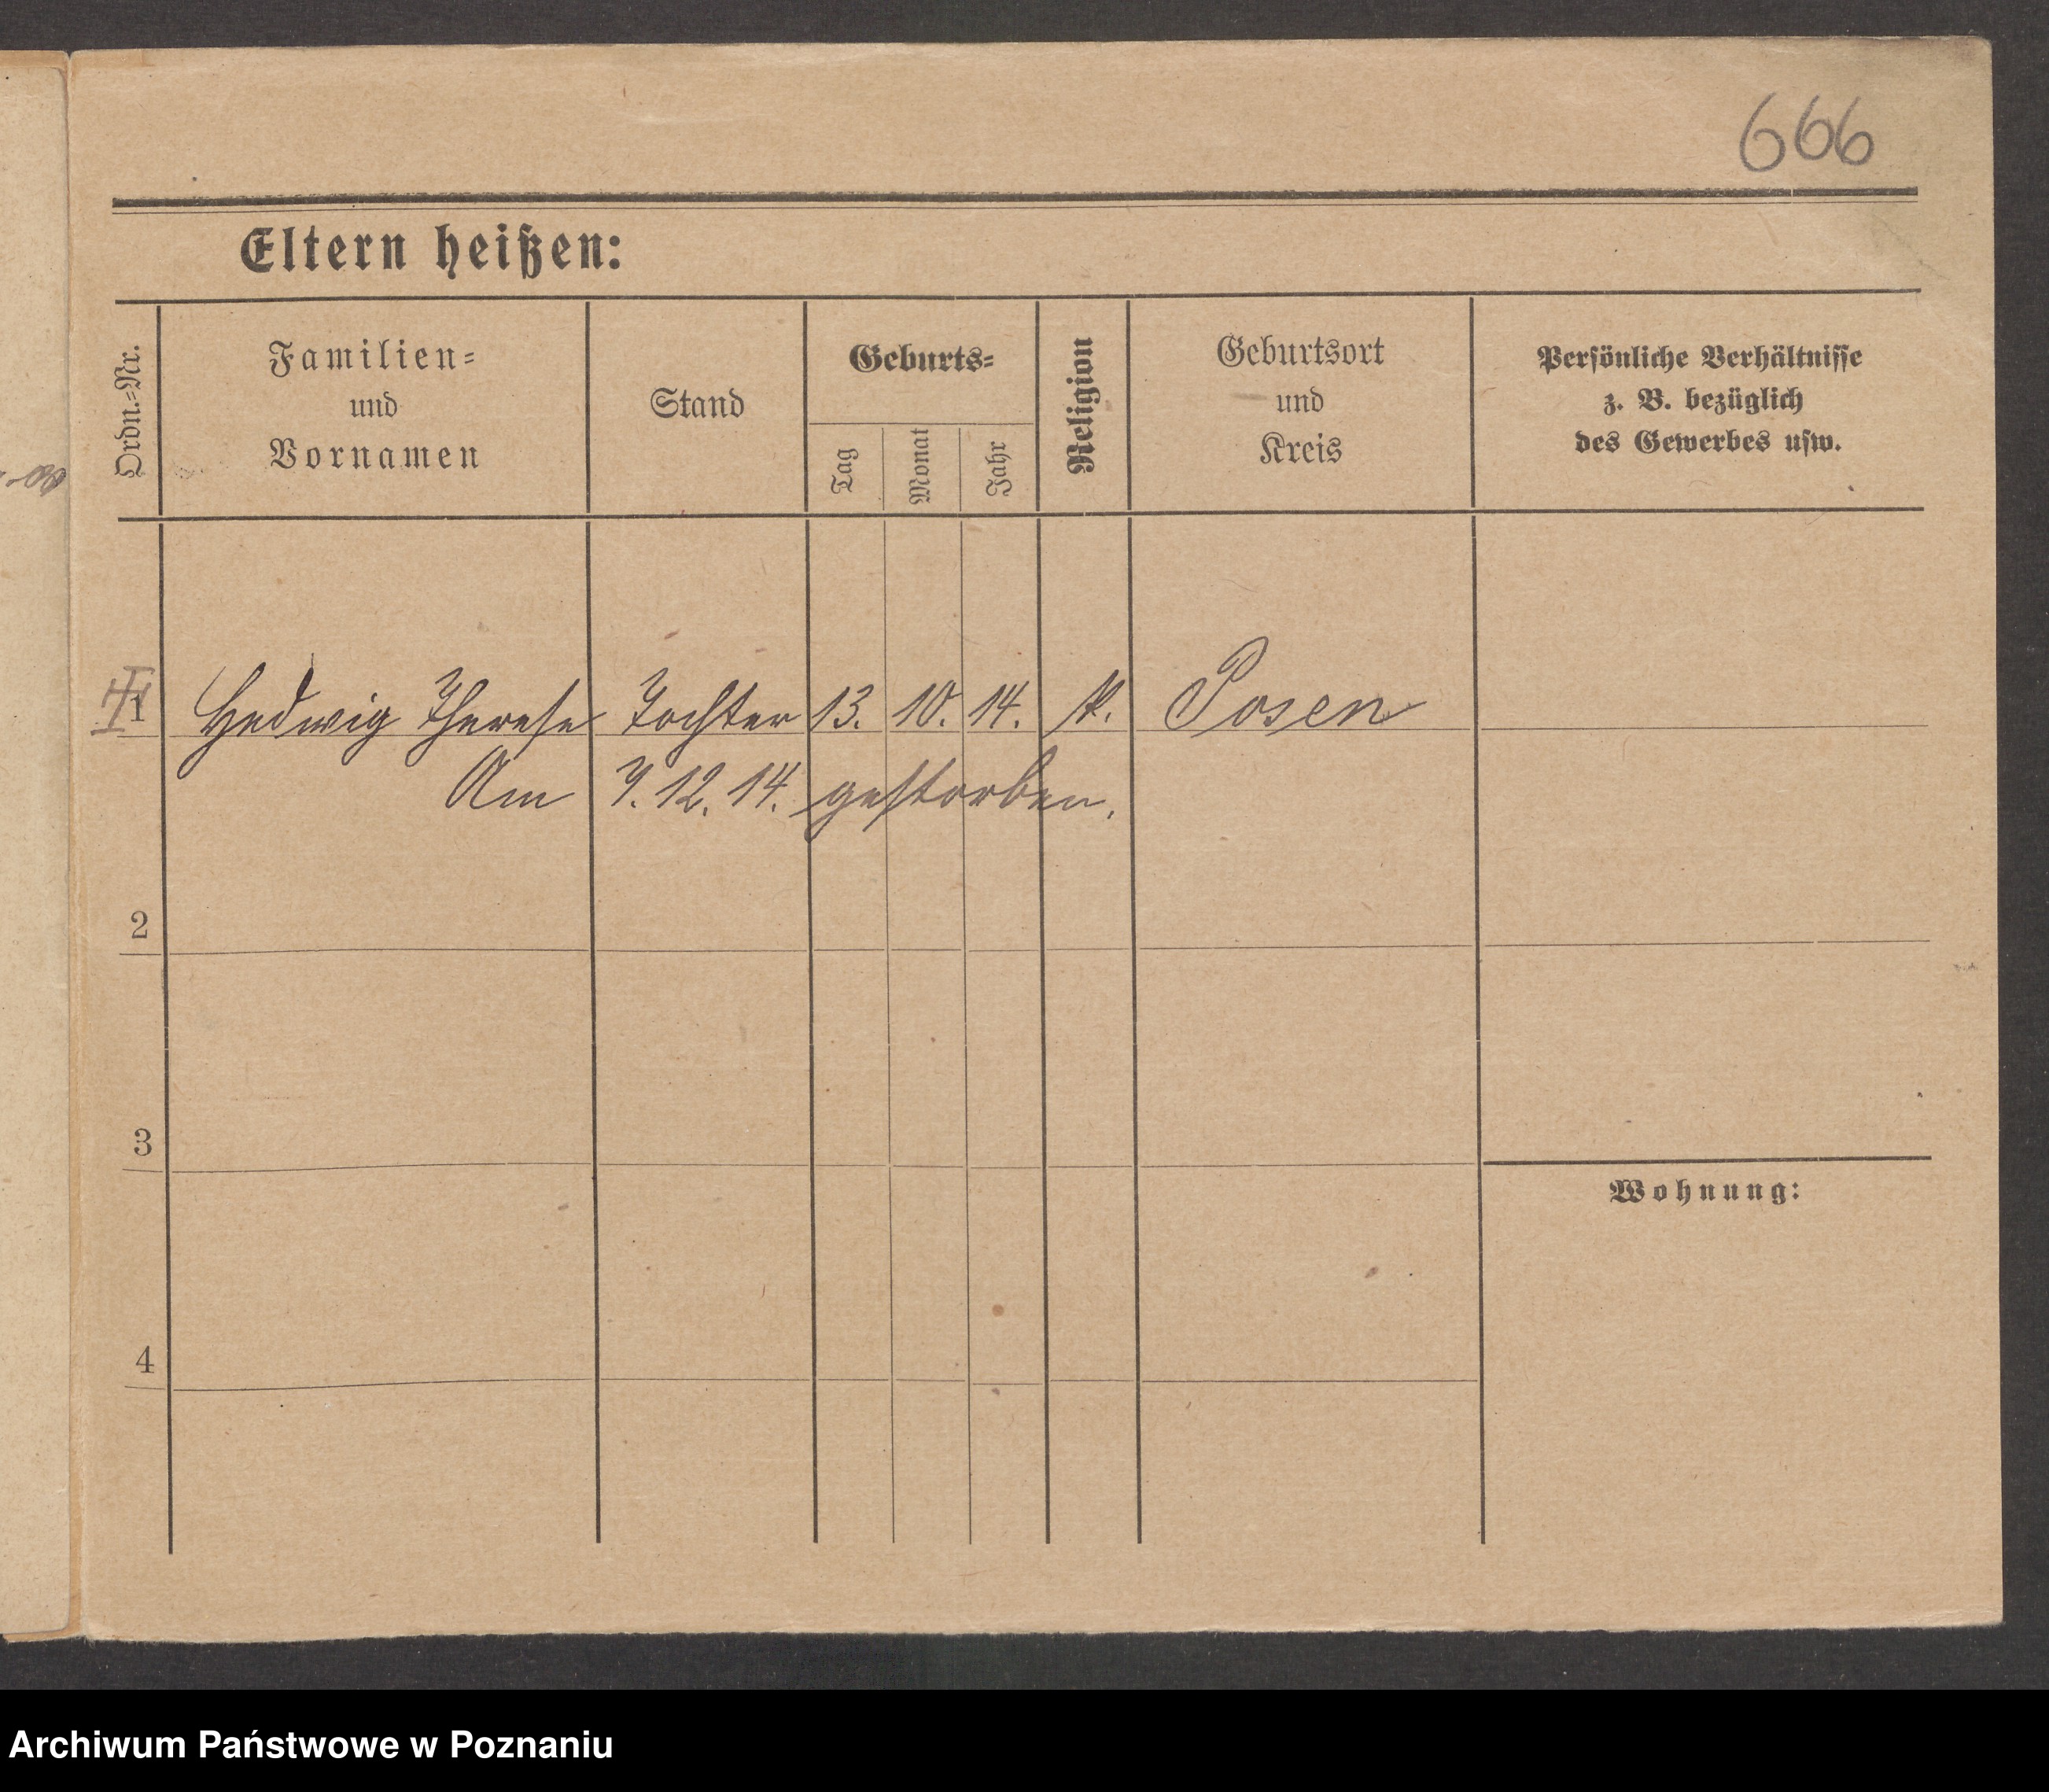 666
Eltern heißen:
Ordn.-Nr.
Familien-
und
Vornamen
Stand
Geburts-
Tag
Monat
Jahr
Religion
Geburtsort
und
Kreis
Persönliche Verhältnisse
z. B. bezüglich
des Gewerbes usw.
1 Hedwig Therese Tochter 13. 10. 14. k. Posen
Am 7. 12. 14. gestorben.
2
3
Wohnung:
4
Archiwum Państwowe w Poznaniu